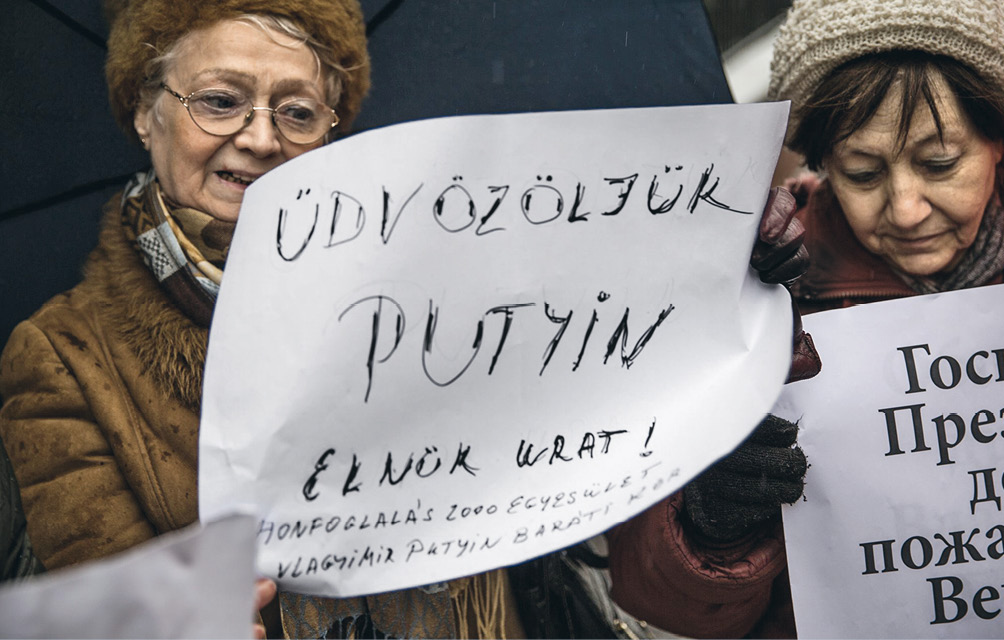 ÜDVÖZÖLJÜK
PUTYIN
ELNÖK URAT!
HONFOGLALÁS 2000 EGYESÜLET
VLAGYIMIR PUTYIN BARÁTI KÖR
Гос
През
до
пожа
Ве